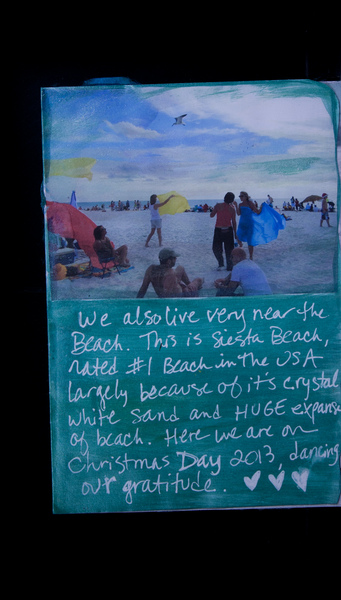 We also live very near the
Beach. This is Siesta Beach,
rated #1 Beach in the USA
largely because of it's crystal
white sand and HUGE expanse
of beach. Here we are on
Christmas Day 2013, dancing
our gratitude.